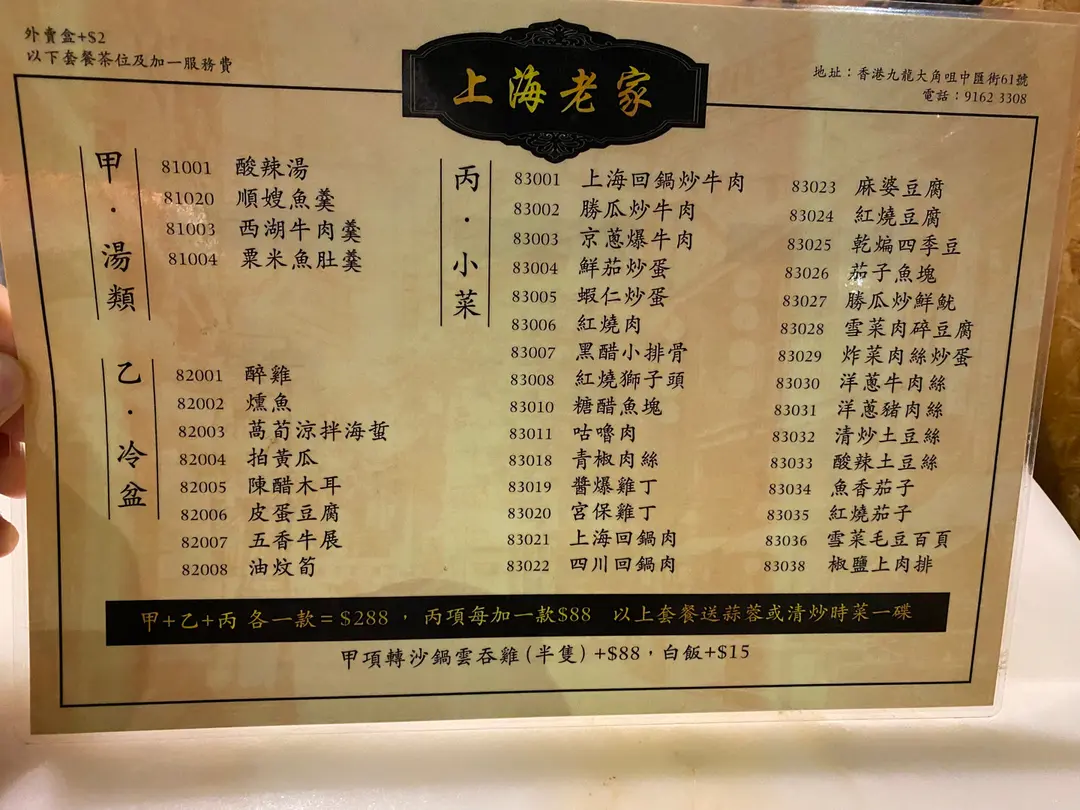 外賣盒+$2
以下套餐茶位及加一服務費
上海老家
地址：香港九龍大角咀中匯街61號
電話：9162 3308
甲·湯類
81001 酸辣湯
81020 順嫂魚羹
81003 西湖牛肉羹
81004 粟米魚肚羹
乙·冷盆
82001 醉雞
82002 燻魚
82003 萵荀涼拌海蜇
82004 拍黃瓜
82005 陳醋木耳
82006 皮蛋豆腐
82007 五香牛展
82008 油炆筍
丙·小菜
83001 上海回鍋炒牛肉
83002 勝瓜炒牛肉
83003 京蔥爆牛肉
83004 鮮茄炒蛋
83005 蝦仁炒蛋
83006 紅燒肉
83007 黑醋小排骨
83008 紅燒獅子頭
83010 糖醋魚塊
83011 咕嚕肉
83018 青椒肉絲
83019 醬爆雞丁
83020 宮保雞丁
83021 上海回鍋肉
83022 四川回鍋肉
83023 麻婆豆腐
83024 紅燒豆腐
83025 乾煸四季豆
83026 茄子魚塊
83027 勝瓜炒鮮魷
83028 雪菜肉碎豆腐
83029 炸菜肉絲炒蛋
83030 洋蔥牛肉絲
83031 洋蔥豬肉絲
83032 清炒土豆絲
83033 酸辣土豆絲
83034 魚香茄子
83035 紅燒茄子
83036 雪菜毛豆百頁
83038 椒鹽上肉排
甲+乙+丙 各一款=$288，丙項每加一款$88 以上套餐送蒜蓉或清炒時菜一碟
甲項轉沙鍋雲吞雞(半隻)+$88，白飯+$15